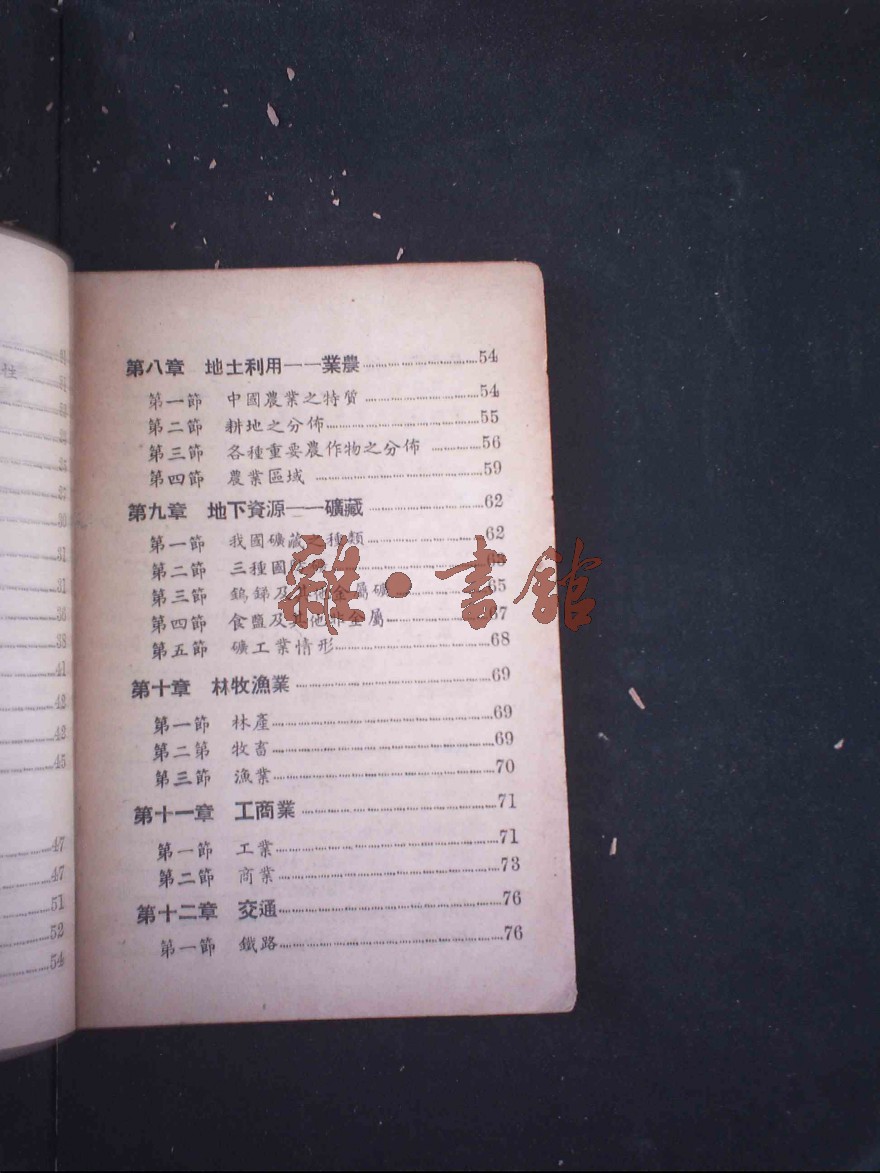 第八章　地土利用——業農……54
第一節　中國農業之特質……54
第二節　耕地之分佈……55
第三節　各種重要農作物之分佈……56
第四節　農業區域……59
第九章　地下資源——礦藏……62
第一節　我國礦藏之種類……62
第二節　三種國
第三節　鎢銻及其他金屬礦……65
第四節　食鹽及其他非金屬……67
第五節　礦工業情形……68
第十章　林牧漁業……69
第一節　林產……69
第二第　牧畜……69
第三節　漁業……70
第十一章　工商業……71
第一節　工業……71
第二節　商業……73
第十二章　交通……76
第一節　鐵路……76
雜·書館
41
42
42
45
47
47
51
52
54